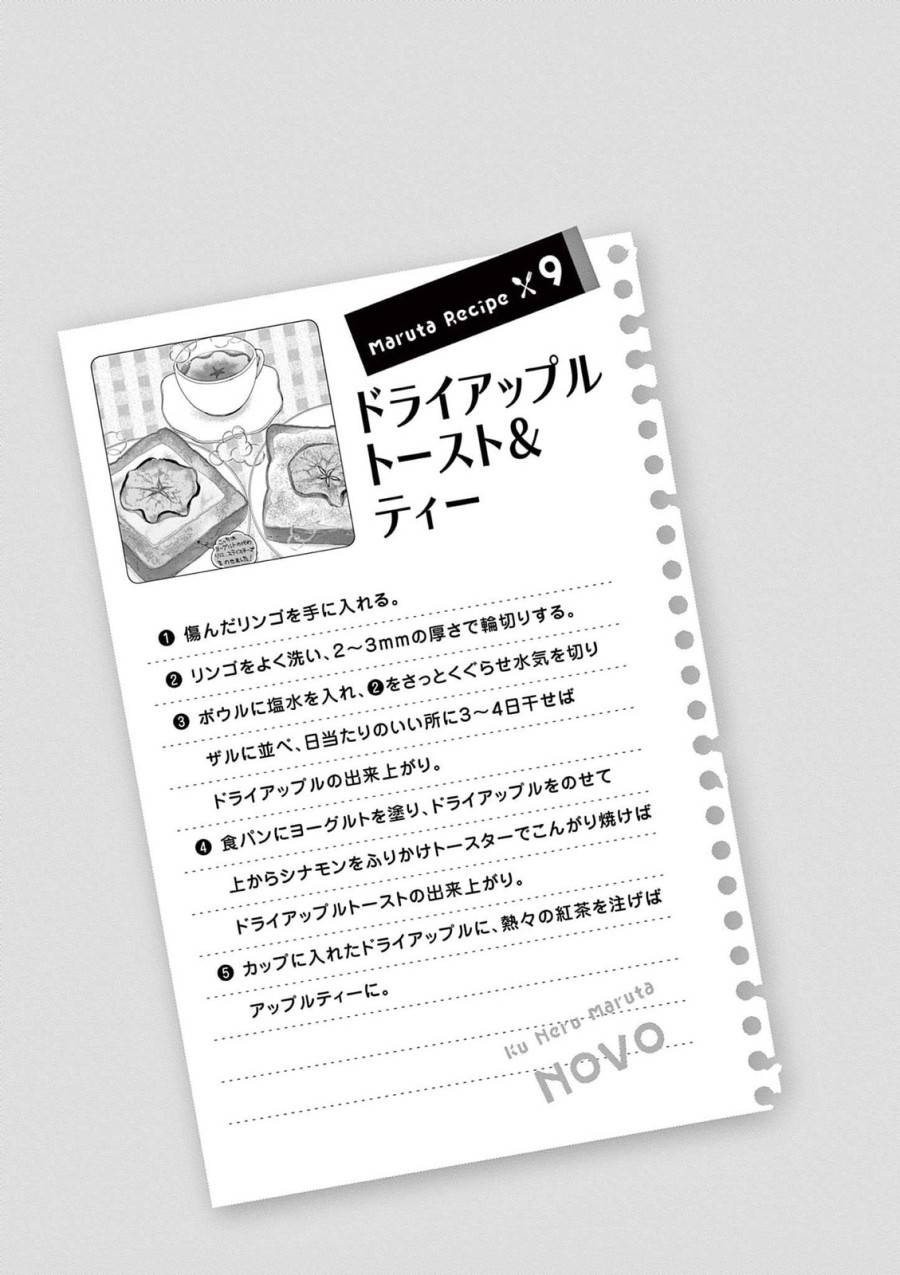 Maruta Recipe 9
ドライアップル
トースト&
ティー
こちらは
ヨーグルトの代わ
りに、スライスチーズ
をのせました!
❶ 傷んだリンゴを手に入れる。
❷ リンゴをよく洗い、2〜3mmの厚さで輪切りする。
❸ ボウルに塩水を入れ、❷をさっとくぐらせ水気を切り
ザルに並べ、日当たりのいい所に3〜4日干せば
ドライアップルの出来上がり。
❹ 食パンにヨーグルトを塗り、ドライアップルをのせて
上からシナモンをふりかけトースターでこんがり焼けば
ドライアップルトーストの出来上がり。
❺ カップに入れたドライアップルに、熱々の紅茶を注げば
アップルティーに。
Ku Nero Maruta
NOVO